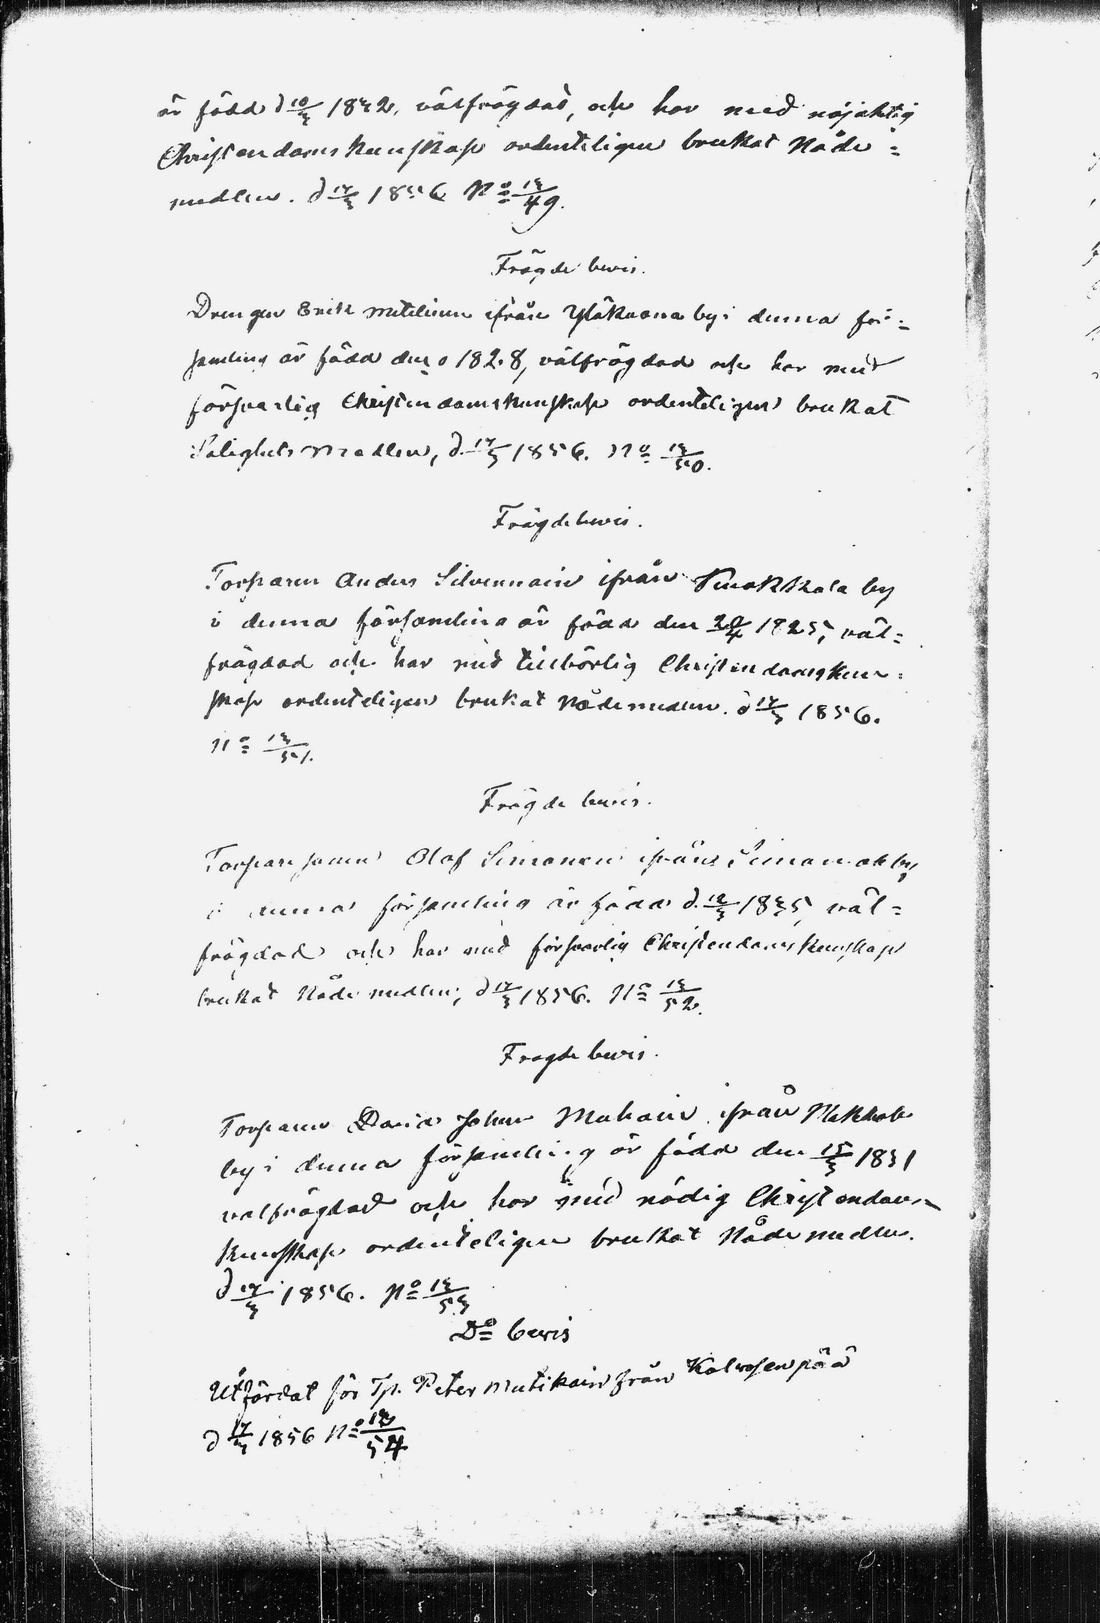 är född d 10/3 1832, välfrägdad, och har med nöjaktig
Christendomskunskap ordenteligen brukat Nåde=
medlen. d 17/3 1856 No 13/49.
Frägdebevis.
Drengen Erik ifrån by i denna för=
samling är född den 1828, välfrägdad och har med
försvarlig Christendomskunskap ordenteligen brukat
Salighets Medlen, d. 17/3 1856. No 13/50.
Frägdebevis.
Torparen Anders Silvennoin ifrån by
i denna församling är född den 20/4 1825, väl=
frägdad och har med tillbörlig Christendomskun=
skap ordenteligen brukat Nådemedlen. d 17/3 1856.
No 13/51.
Frägdebevis.
Torparesonen Olof Simonen ifrån by
i denna församling är född d. 1835, väl=
frägdad och har med försvarlig Christendomskunskap
brukat Nådemedlen; d 17/3 1856. No 13/52.
Fragdebevis.
Torparen David Johan ifrån
by i denna församling är född den 15/3 1831
valfrägdad och har med nödig Christendoms
kunskap ordenteligen brukat Nådemedlen.
d 17/3 1856. No 13/53
Do bevis
Utfärdat för Tp. Peter Mutikain från
d 17/3 1856 No 13/54